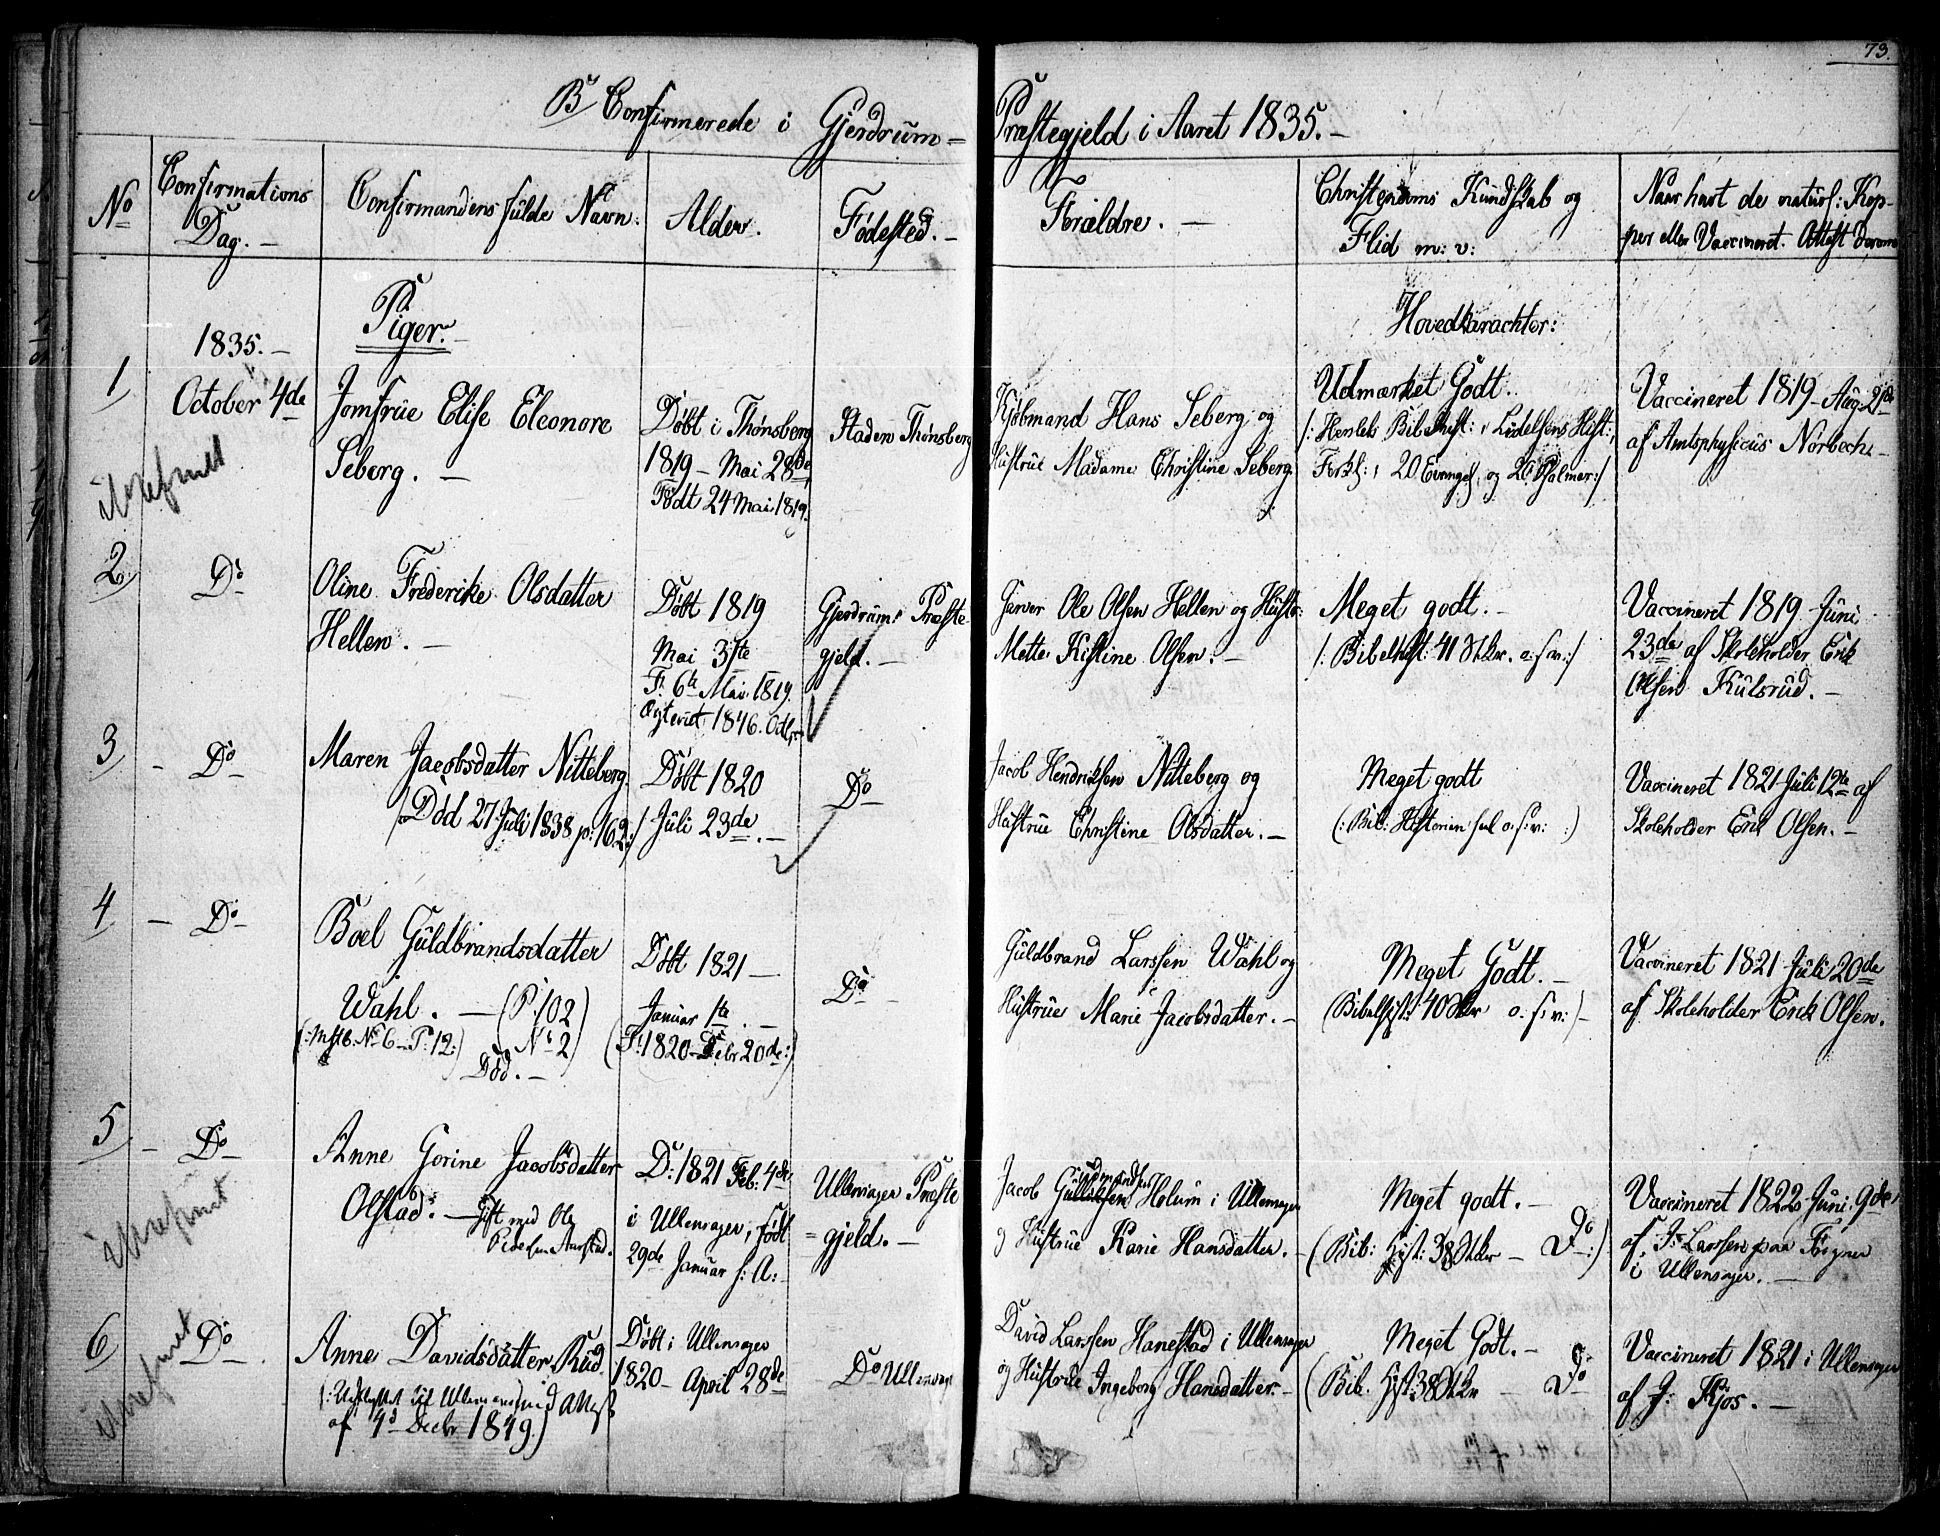 73.
B, Confirmerede i Gjerdrum = Præstegjeld i Aaret 1835. —
No
Confirmations
Dag. —
Confirmandens fulde Navn.
Alder.
Fødested. —
Forældre. —
Christendoms Kundskab og
Flid m: v:
Naar havt de naturl: Kop-
per eller Vaccineret. Attest derom
Piger. —
Hovedkarachter:
1835. —
1
October 4de
Jomfrue Elise Eleonore
Seberg. —
Døbt i Thønsberg
1819 — Mai 28de
Født 24 Mai 1819.
Staden Thønsberg
Kjøbmand Hans Seberg og
Hustrue Madame Christine Seberg
Udmærket Godt.
20 Evangel. og 20 Psalmer:/
Vaccineret 1819 — Aug. 2de
af Amtsphysicus Norbech. —
2
Do
Oline Frederike Olsdatter
Hellen. —
Døbt 1819
Mai 31te
F. 6te Mai 1819.
1846.
Gjerdrums Præste
gjeld. —
Garver Ole Olsen Hellen og Hustr:
Mette Kistine Olsen. —
Meget godt. —
/: Bibelhist: 41 Stkr. o: s: v:/
Vaccineret 1819 Juni
23de af Skoleholder Erik
Olsen Kulsrud. —
3
— Do
Maren Jacobsdatter Nitteberg
/Død 27 Juli 1838 p: 162:/
Døbt 1820
Juli 23de. —
Do
Jacob Hendriksen Nitteberg og
Hustrue Christine Olsdatter. —
Meget godt
(: Bib: Historien o: s: v: :)
Vaccineret 1821 Juli 12te af
Skoleholder Erik Olsen. —
4
— Do
Boel Guldbrandsdatter
Wahl. — (P. 102)
No 6 — P: 12:)
No 2
Død. —
Døbt 1821 —
Januar 1te. —
(F. 1820 — Debr 20de:)
Do
Guldbrand Larssen Wahl og
Hustrue Marie Jacobsdatter. —
Meget Godt. —
(Bibelhist: 40 Stkr o: s: v:) —
Vaccineret 1821 Juli 20de
af Skoleholder Erik Olsen.
5
— Do
Anne Gorine Jacobsdatter
Olstad. — Gift med Ole
Pedersen Aarstad.
D: 1821 Feb: 4de
i Ullensager, født
29de Januar s: A: —
Ullensager Præste
= gjeld. —
Jacob Holum i Ullensager
og Hustrue Karie Hansdatter. —
Meget godt. —
(Bib: Hist: 38 Stkr — Do:)
Vaccineret 1822 Juni 9de
af J. Larssen paa Fogner
i Ullensager. —
6
Do
Anne Davidsdatter Rud
(: Udflyttet til Ullensager med Attest
af 4d Decbr 1849.)
Døbt i Ullensager
1820 — April 28de
Do Ullensager
David Larssen Hanestad i Ullensager
og Hustrue Ingeborg Hansdatter —
Meget Godt. —
(Bib. Hist: 38 Stkr — Do
Vaccineret 1821 i Ullensager
af J: Kjos. —